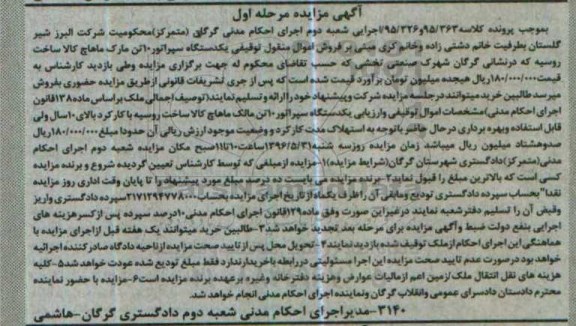 آگهی مزایده مرحله اول
بموجب پرونده کلاسه ۹۵/۳۶۳و۹۵/۳۲۶اجرایی شعبه دوم اجرای احکام مدنی گرگان (متمرکز)محکومیت شرکت البرز شیر
گلستان بطرفیت خانم دشتی زاده وخانم کری مبنی بر فروش اموال منقول توقیفی یکدستگاه سپراتور۱۰تن مارک ماهاچ کالا ساخت
روسیه که درنشانی گرگان شهرک صنعتی که حسب تقاضای محکوم له جهت برگزاری مزایده وطی بازدید کارشناس به
قیمت۱۸۰/۰۰۰/۰۰۰ریال هیجده میلیون تومان برآورد قیمت شده است که پس از جری تشریفات قانونی ازطریق مزایده حضوری بفروش
میرسد طالبین خرید میتوانند درجلسه مزایده شرکت وپیشنهاد خود را ارائه و تسلیم نمایند(توصیف اجمالی ملک براساس ماده۱۳۸قانون
اجرای احکام مدنی)مشخصات اموال توقیفی وارزیابی یکدستگاه سپراتور۱۰تن مالک ماهاچ کالا ساخت روسیه با کارکرد بالای۱۰سال ولی
قابل استفاده وبهره برداری در حال حاضر باتوجه به استهلاک مدت کارکرد و وضعیت موجود ارزش ریالی آن حدودا مبلغ ۱۸۰/۰۰۰/۰۰۰ریال
صدوهشتاد میلیون ریال میباشد زمان مزایده روزسه شنبه۱۳۹۶/۵/۳۱ساعت۱۰تا۱۱صبح مکان مزایده شعبه دوم اجرای احکام
مدنی(متمرکز)دادگستری شهرستان گرگان(شرایط مزایده)۱-مزایده ازمبلغی که توسط کارشناس تعیین گردیده شروع و برنده مزایده
کسی است که بالاترین مبلغ را قبول نماید۲-برنده مزایده می بایست ده درصد مبلغ مورد پیشنهاد را تا پایان وقت اداری روز مزایده
نقدا"بحساب سپرده دادگستری تودیع ومابقی آن را ظرف یکماه ازتاریخ اجرای مزایده بحساب۲۱۷۱۲۹۴۷۷۸۰۰۰سپرده دادگستری واریز
وفیش آن را تسلیم دفترشعبه نمایند درغیراین صورت وفق ماده۱۲۹قانون اجرای احکام مدنی۱۰درصد سپرده پس ازکسرهزینه های
اجرایی بنفع دولت ضبط وآگهی مزایده برای مرحله بعد تجدید خواهد شد۳-طالبین خرید میتوانند یک هفته قبل ازاجرای مزایده با
هماهنگی این اجرای احکام ازملک توقیف شده بازدید نمایند۴-تحویل محل پس از تایید صحت مزایده ازناحیه دادگاه صادرکننده اجرائیه
خواهد بود درصورت عدم تایید صحت مزایده این اجرا مسئولیتی دررابطه باخریدارندارد فقط مبلغ تودیع شده عودت خواهد شد۵-کلیه
هزینه های نقل انتقال ملک ازمین اعم ازمالیات عوارض وهزینه دفترخانه وغیره برعهده برنده مزایده است۶-مزایده با حضور نماینده
محترم دادستان دادسرای عمومی وانقلاب گرگان ونماینده اجرای احکام مدنی انجام خواهد شد.
۳۱۴۰-مدیراجرای احکام مدنی شعبه دوم دادگستری گرگان-هاشمی